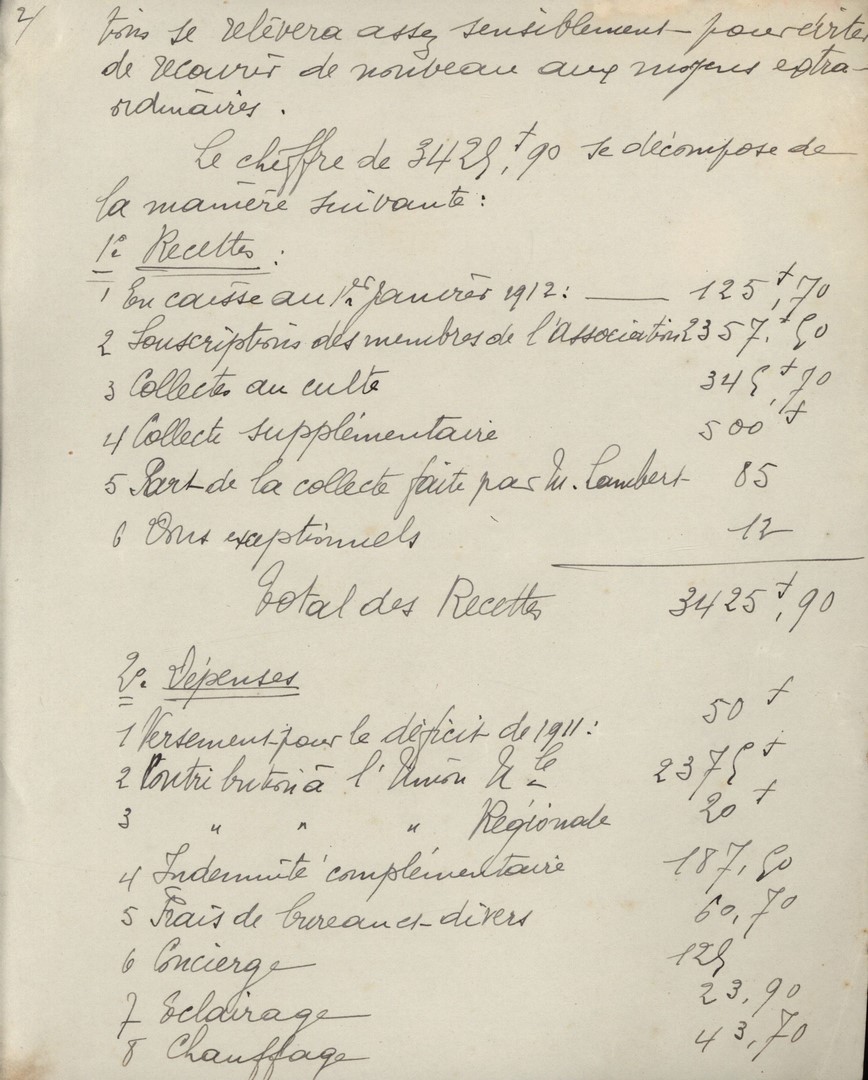 2/
tions se relèvera assez sensiblement pour éviter
de recourir de nouveau aux moyens extra-
ordinaires.
Le chiffre de 3425f,90 se décompose de
la manière suivante :
1º Recettes :
1 En caisse au 1er Janvier 1912 : — 125f,70
2 Souscriptions des membres de l'Association 2357f,50
3 Collectes au culte 345f,70
4 Collecte supplémentaire 500f
5 Part de la collecte faite par M. Lambert 85
6 Dons exceptionnels 12
Total des Recettes 3425f,90
2º. Dépenses
1 Versement pour le déficit de 1911 : 50f
2 Contribution à l'Union Nle 2375f
3 " " " Régionale 20f
4 Indemnité complémentaire 187,50
5 Frais de bureau et divers 60,70
6 Concierge 125
7 Eclairage 23,90
8 Chauffage 43,70